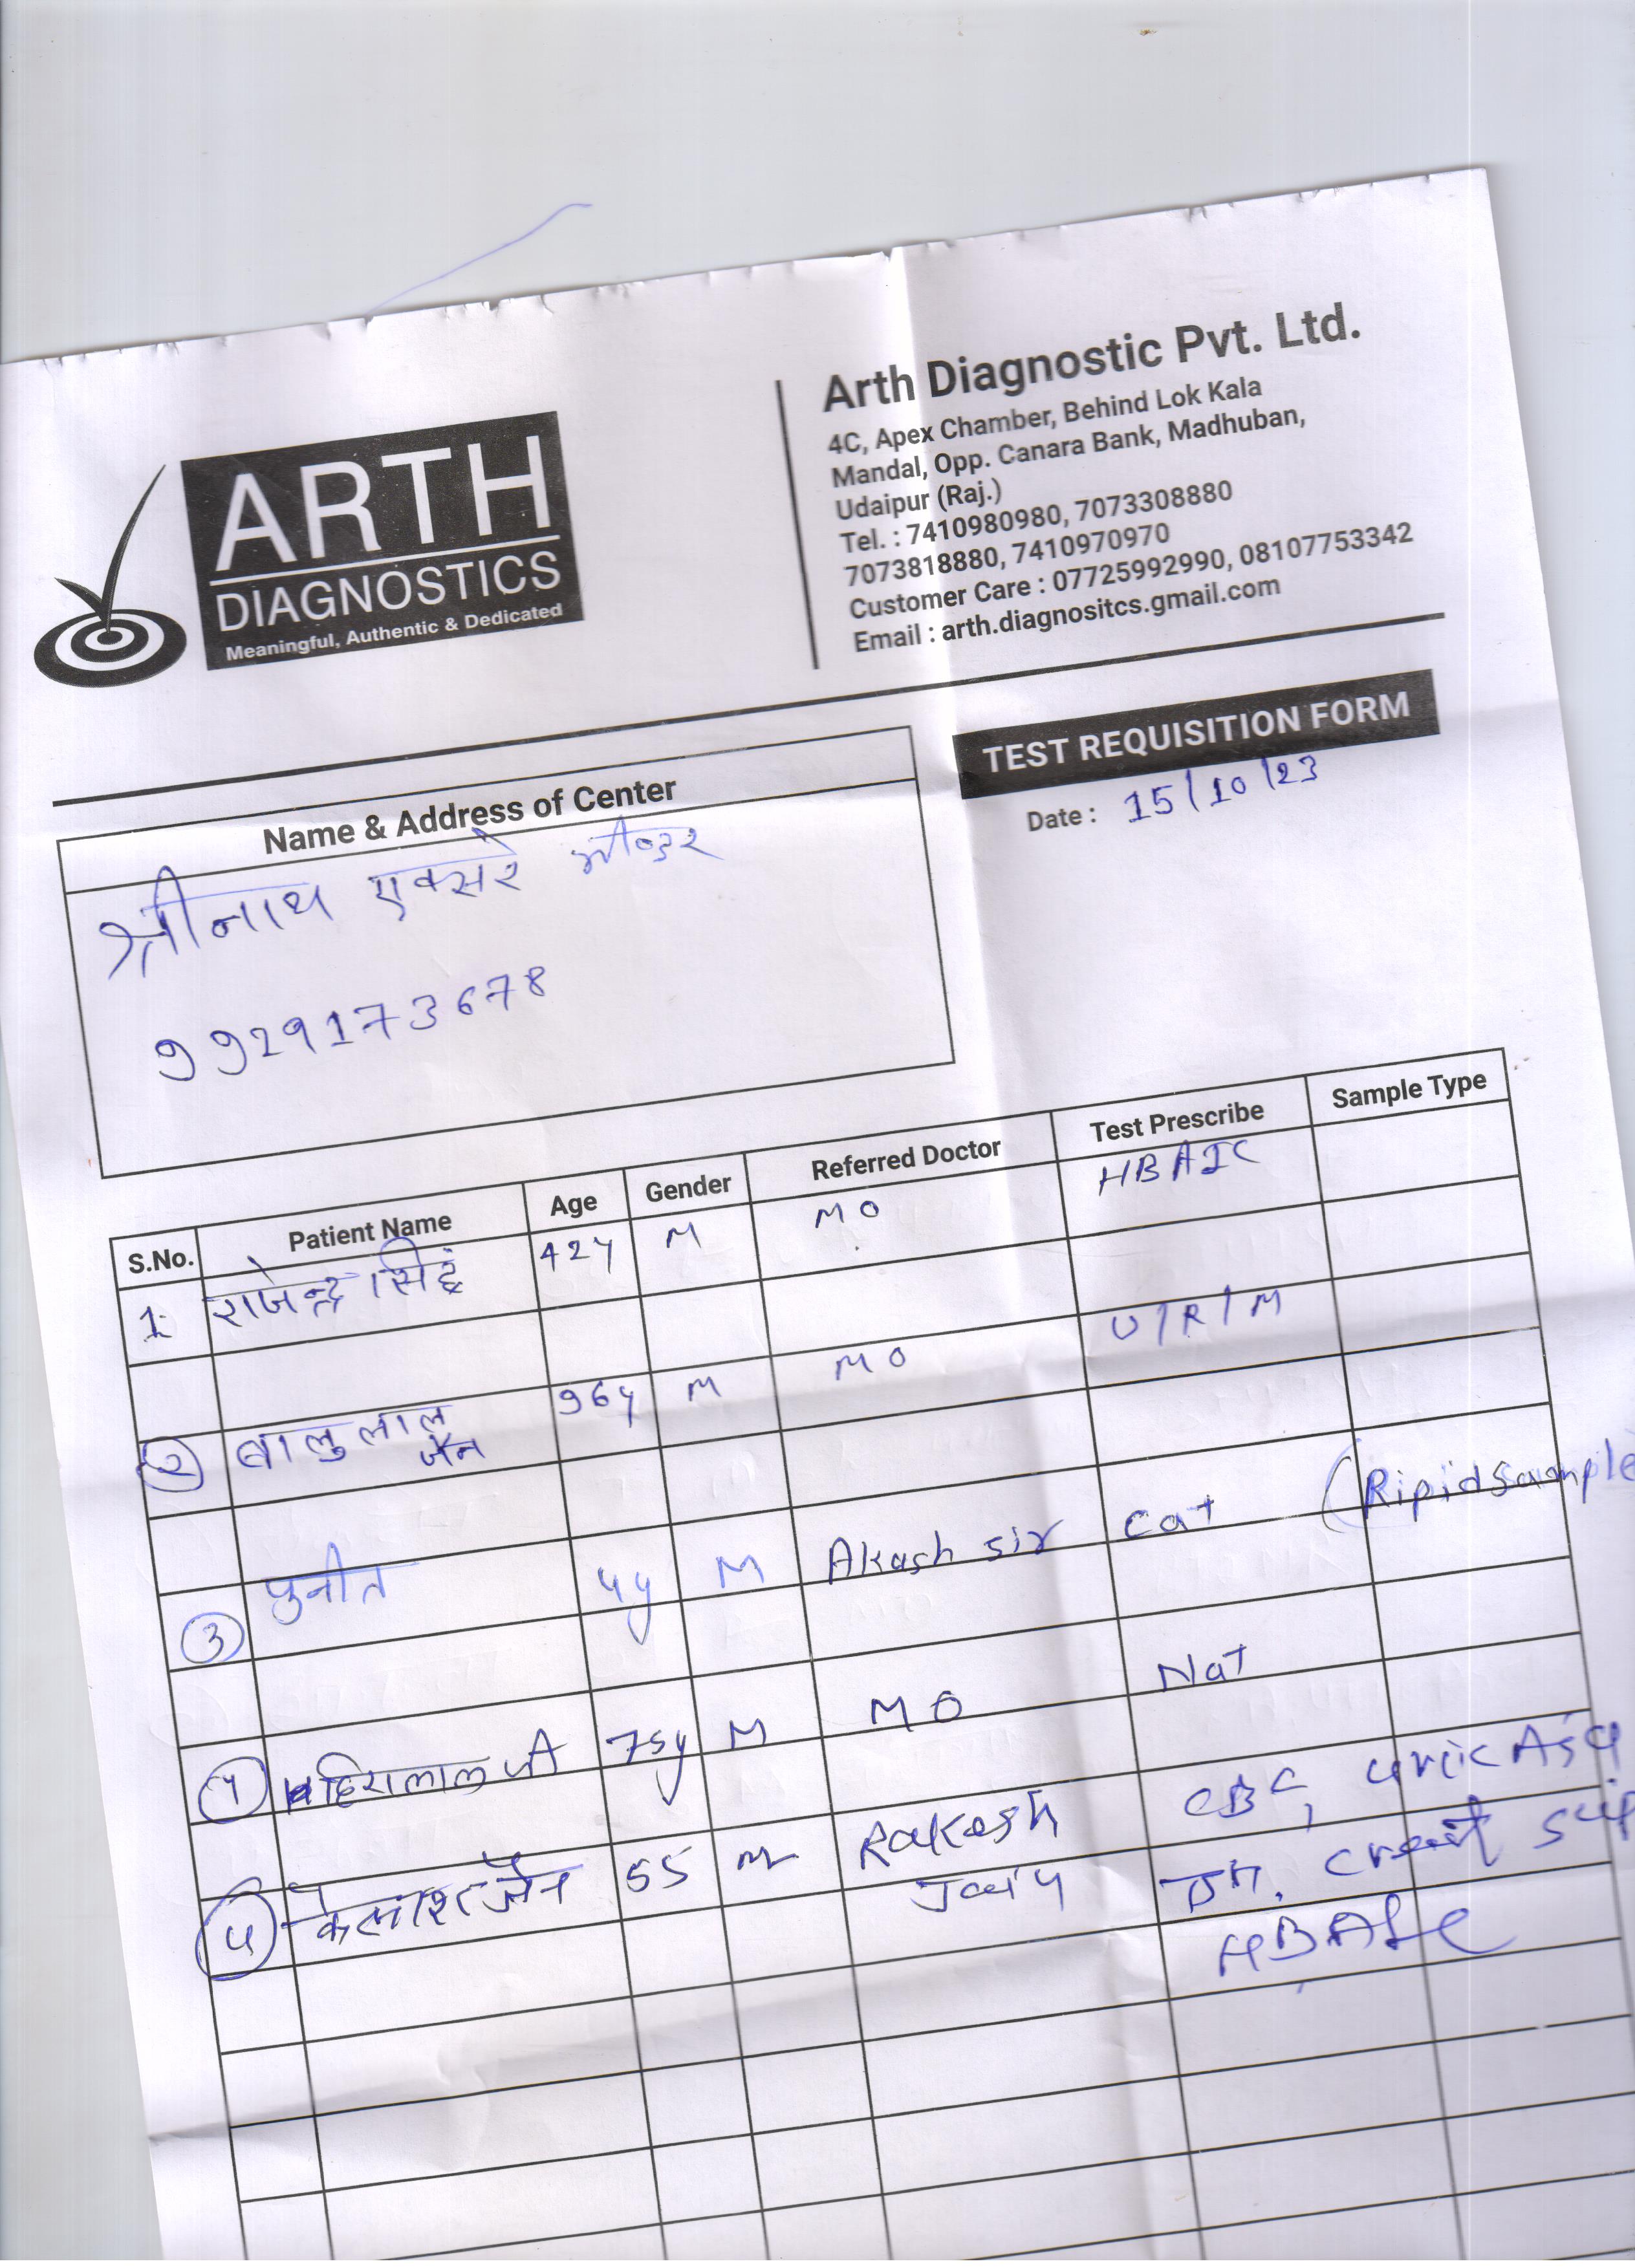 ARTH
DIAGNOSTICS
Meaningful, Authentic & Dedicated
Arth Diagnostic Pvt. Ltd.
4C, Apex Chamber, Behind Lok Kala
Mandal, Opp. Canara Bank, Madhuban,
Udaipur (Raj.)
Tel. : 7410980980, 7073308880
7073818880, 7410970970
Customer Care : 07725992990, 08107753342
Email : arth.diagnositcs.gmail.com
TEST REQUISITION FORM
Date : 15/10/23
Name & Address of Center
श्रीनाथ एक्सरे
9929173678
S.No. Patient Name Age Gender Referred Doctor Test Prescribe Sample Type
1. राजेन्द्र सिंह 42y M MO HBAIC
२ बालुलाल जैन 96y M MO U/R/M
3 पुनीत 4y M Akash sir Cat (Ripid sample
हिरालाल 75y M MO Nat
५ कैलाश जैन 55 M Rakesh CBC,
HBA1C